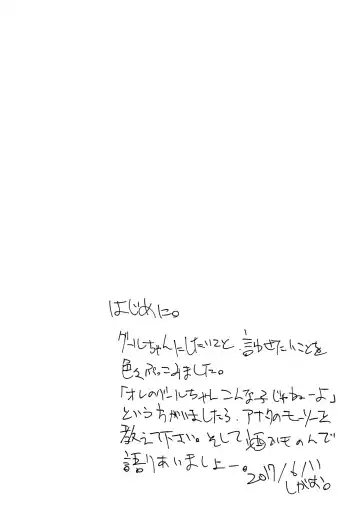 はじめに。
グールちゃんにしたいことと言わせたいことを
色々ぶっこみました。
「オレのグールちゃんこんな子じゃねーよ」
という方がいましたら、アナタのモーソーを
教えて下さい。そして ものんで
語りあいましょー。
2017/6/11
しがめ。